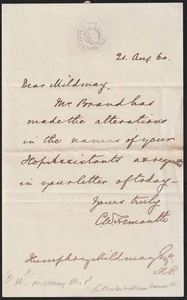 21 Aug 60.
Dear Mildmay,
Mr Brand has
made the alterations
in the names of your
Hop Assistants as requested
in your letter of today—
Yours truly
CW Fremantle
Humphrey Mildmay Esq
M.P.
Mildmay M.P